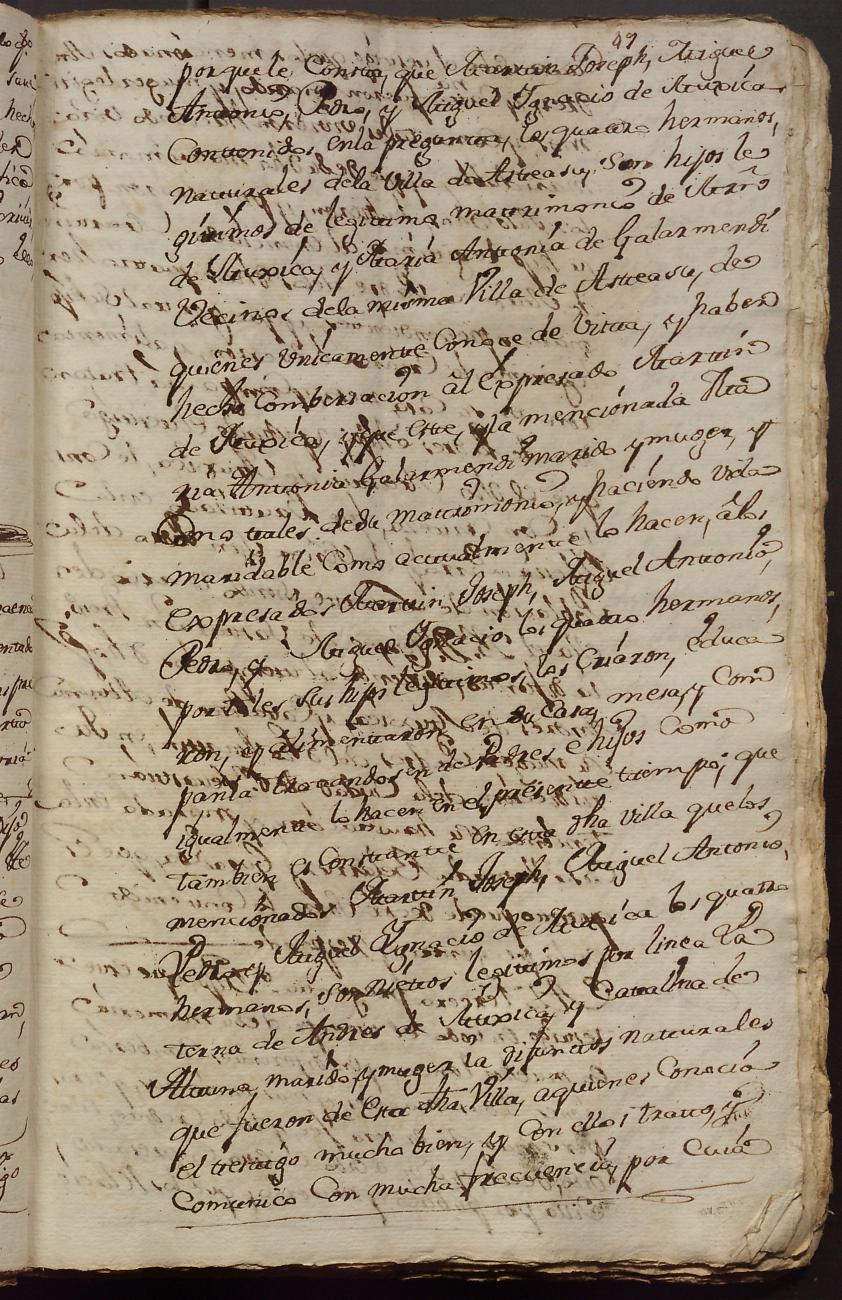 49
porque le Consta, que Martin Joseph, Miguel
Antonio, Pedro, y Miguel Ygnacio de
Contenidos en la pregunta, los quatro hermanos,
naturales de la Villa de Asteasu, Son hijos le
gitimos de legitimo matrimonio de Martin
de y Maria Antonia de Galarmendi
Vecinos de la misma Villa de Asteasu, de
quienes unicamente Conoce de Vista, y haber
hecho Combersacion al Expresado Martin
de y que este, y la mencionada Ma
ria Antonia Galarmendi marido y muger, y
Como tales de su matrimonio, y haciendo vida
maridable Como actualmente lo hacen, â los
Expresados Martin Joseph, Miguel Antonio,
Pedro, y Miguel Ygnacio, los quatro hermanos,
por tales sus hijos legitimos, los Criaron, educa
ron, y alimentaron en su Casa, mesa, y Com
pañia tratandosen de Padres e hijos Como
igualmente lo hacen en el presente tiempo; que
tambien es Constante en esta dha Villa que los
mencionados Martin Joseph, Miguel Antonio,
Pedro, y Miguel Ygnacio de los quatro
hermanos, Son Nietos legitimos por linea Pa
terna de Andres de y Catalina de
Altuna, marido, y muger ia difuntos naturales
que fueron de Esta dha Villa, a quienes Conocio
el testigo mucho bien, y Con ellos trato, y
Comunicó Con mucha frecuencia, por Cuia